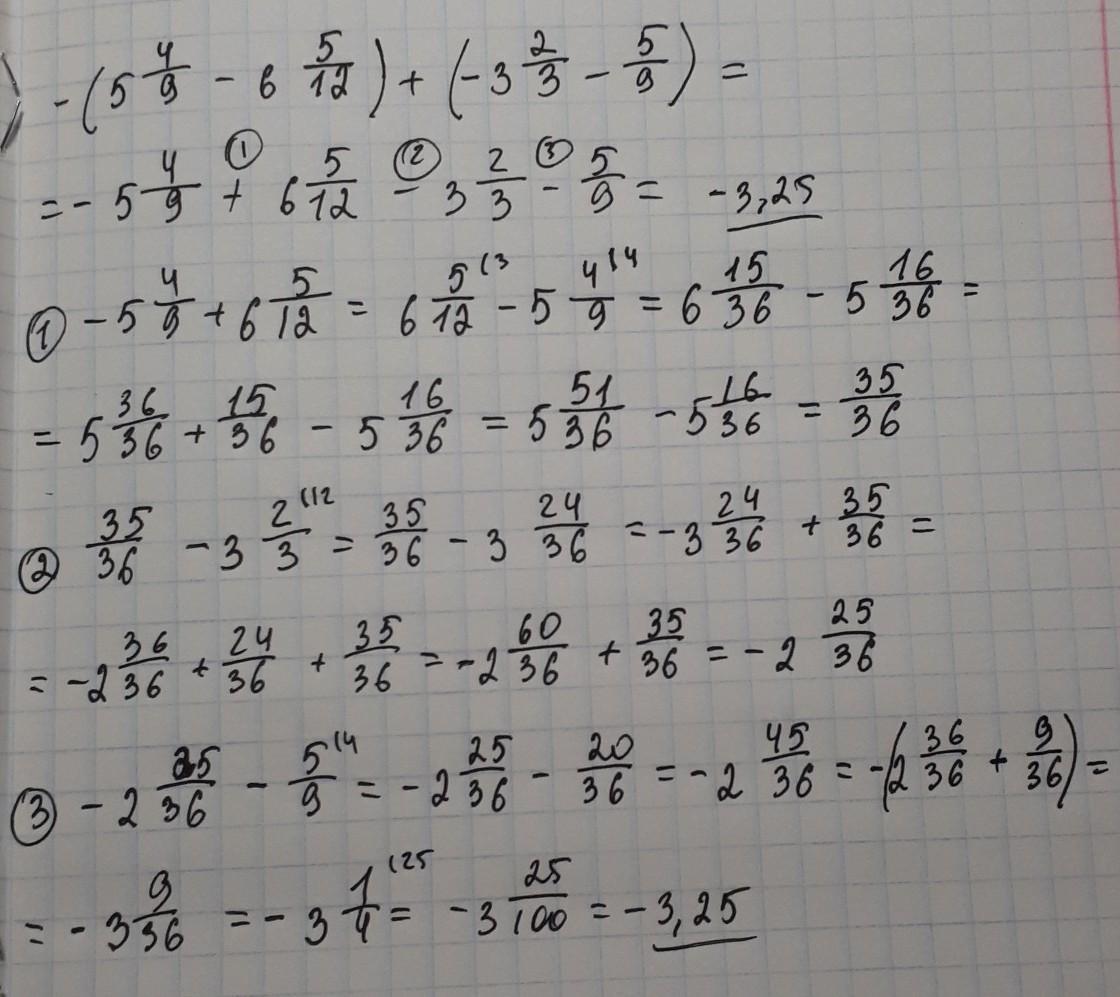 -(5 4/9 - 6 5/12) + (-3 2/3 - 5/9) =
= - 5 4/9 + ① 6 5/12 - ② 3 2/3 - ③ 5/9 = -3,25
① - 5 4/9 + 6 5/12 = 6 5/12 (3 - 5 4/9 (4 = 6 15/36 - 5 16/36 =
= 5 36/36 + 15/36 - 5 16/36 = 5 51/36 - 5 16/36 = 35/36
② 35/36 - 3 2/3 (12 = 35/36 - 3 24/36 = - 3 24/36 + 35/36 =
= - 2 36/36 + 24/36 + 35/36 = - 2 60/36 + 35/36 = - 2 25/36
③ - 2 25/36 - 5/9 (4 = - 2 25/36 - 20/36 = - 2 45/36 = -(2 36/36 + 9/36) =
= - 3 9/36 = - 3 1/4 (25 = - 3 25/100 = - 3,25